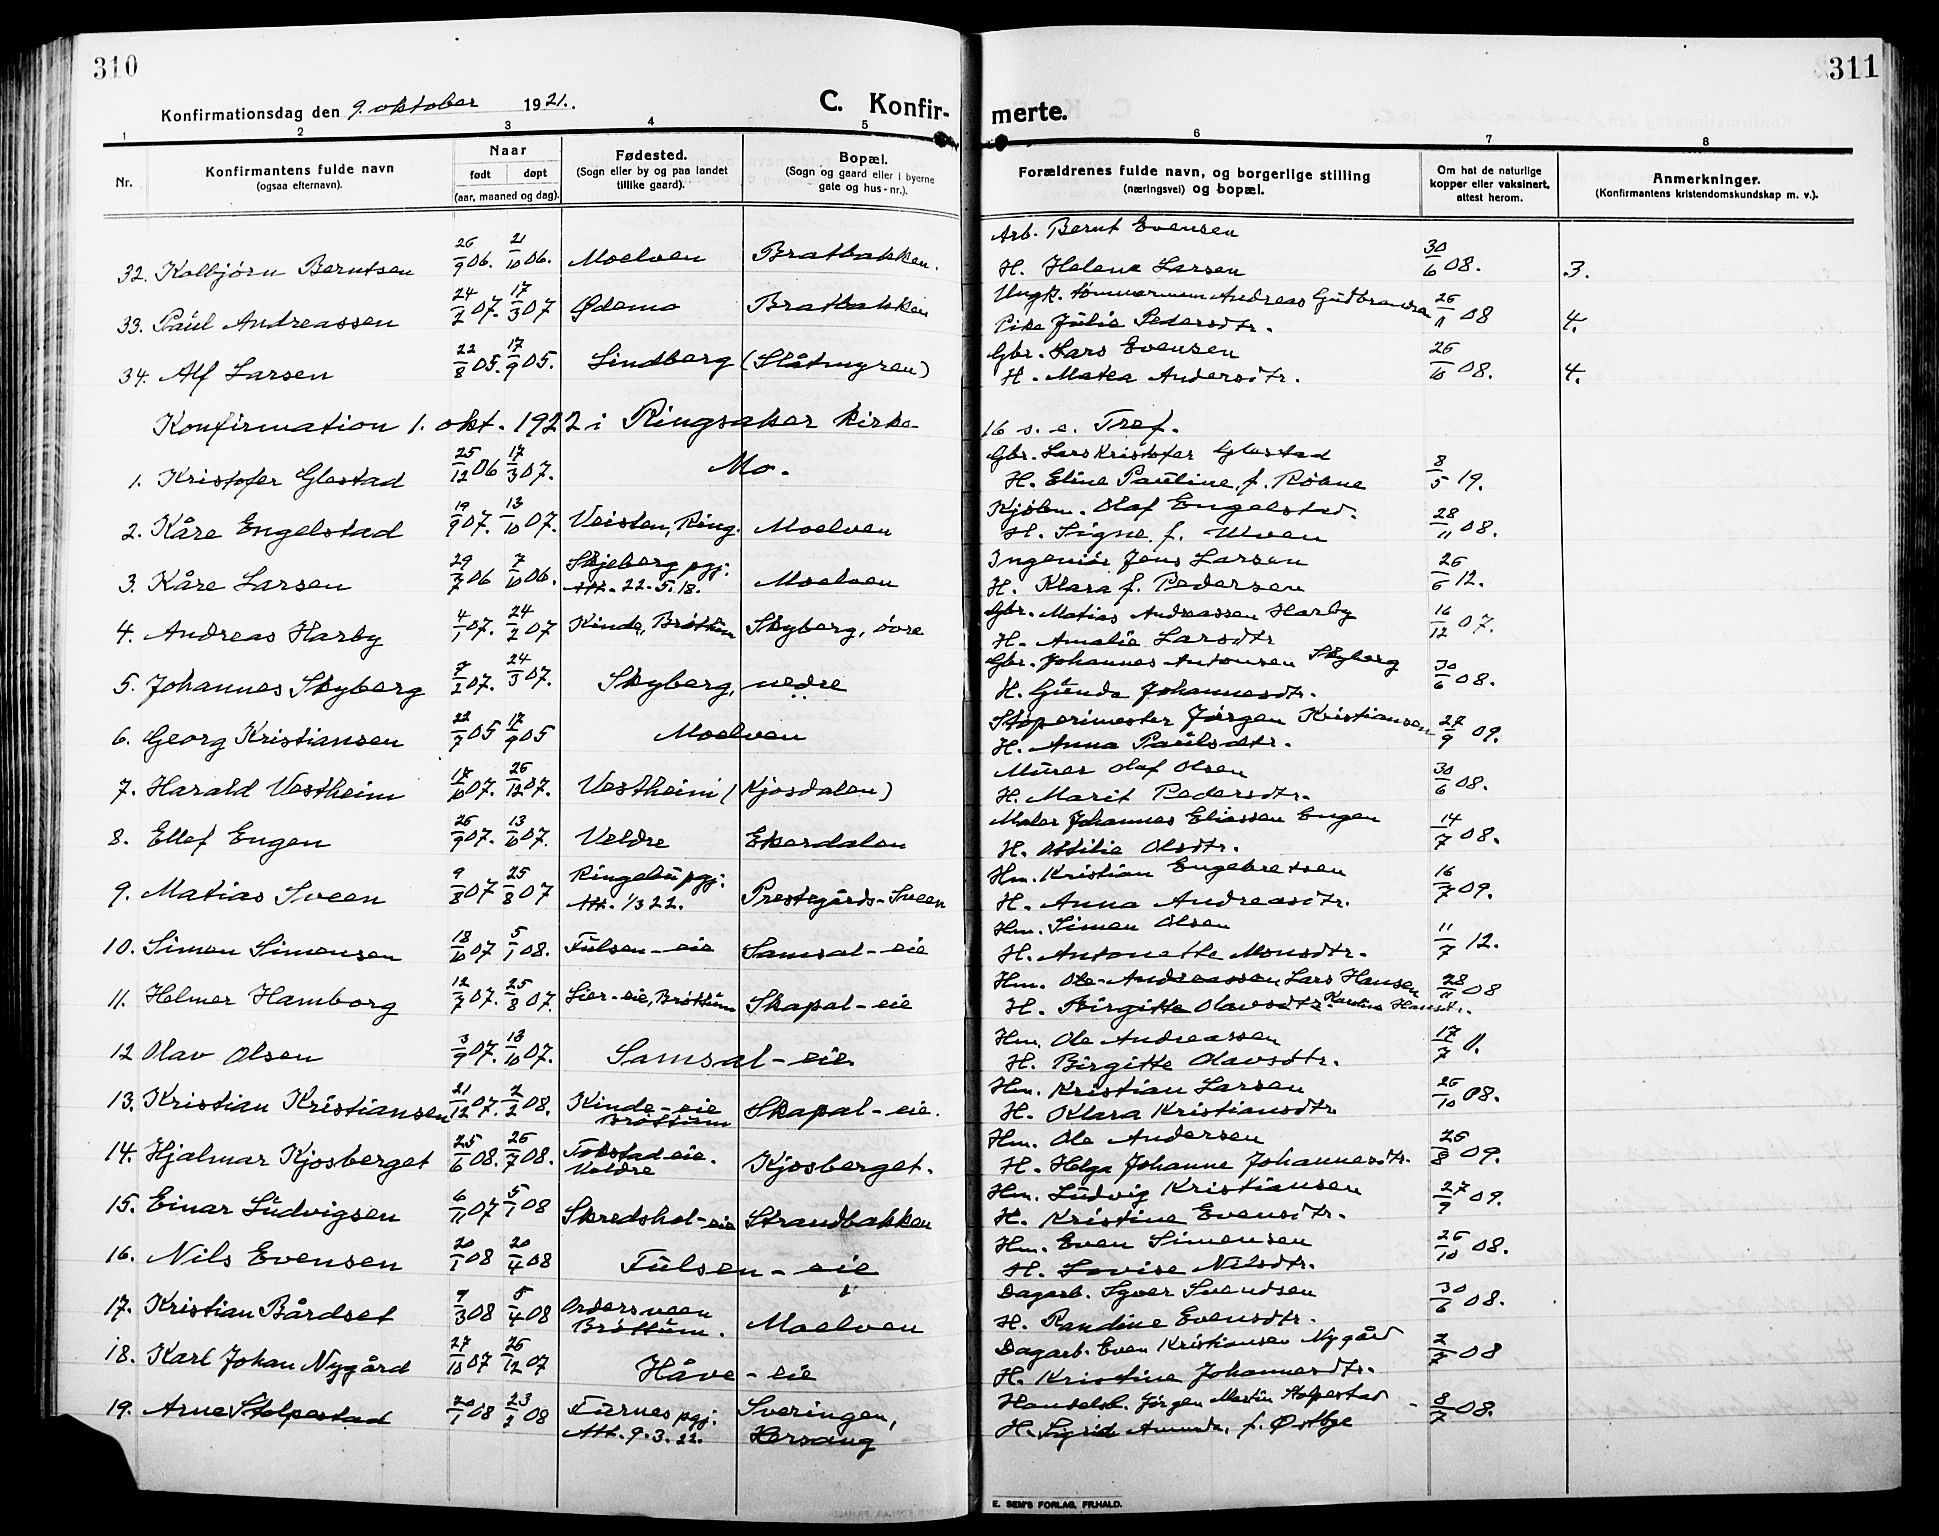 310
311
Konfirmationsdag den 9. oktober 1921.
C. Konfir-
merte.
1 2 3 4 5 6 7 8
Nr.
Konfirmantens fulde navn
(ogsaa efternavn).
Naar
født døpt
(aar, maaned og dag).
Fødested.
(Sogn eller by og paa landet
tillike gaard).
Bopæl.
(Sogn og gaard eller i byerne
gate og hus-nr.).
Forældrenes fulde navn, og borgerlige stilling
(næringsvei) og bopæl.
Om hat de naturlige
kopper eller vaksinert,
attest herom.
Anmerkninger.
(Konfirmantens kristendomskundskap m. v.).
Arb. Bernt Evensen
32. Kolbjørn Berntsen 26/9 06. 21/10 06. Moelven Bratbakken. H. Helene Larsen 30/6 08. 3.
Ungk. tømmermann Andreas Gudbrandsen
33. Paul Andreassen 24/2 07. 17/3 07 Ødemo Bratbakken Pike Julie Pedersdtr. 26/11 08 4.
Gbr. Lars Evensen
34. Alf Larsen 22/8 05. 17/9 05. Lindberg (Slåtmyren) H. Matea Andersdtr. 26/10 08. 4.
Konfirmation 1. okt. 1922 i Ringsaker kirke 16 s. e. Tref.
Gbr. Lars Kristofer Glestad
1. Kristofer Glestad 25/12 06 17/3 07. Mo. H. Eline Pauline, f. Røhne 8/5 19.
Kjøbm. Olaf Engelstad.
2. Kåre Engelstad 19/9 07. 13/10 07. Veisten, Ring. Moelven H. Signe f. Ulven 28/11 08.
Skjeberg pgj. Ingeniør Jens Larsen
3. Kåre Larsen 29/7 06 7/10 06. Att. 22.5.18. Moelven H. Klara f. Pedersen 26/6 12.
Gbr. Matias Andreassen Harby
4. Andreas Harby 4/1 07. 24/2 07 Kinde, Brøttum Skyberg, øvre H. Amalie Larsdtr 16/12 07.
Gbr. Johannes Antonsen Skyberg
5. Johannes Skyberg 7/2 07. 24/3 07. Skyberg, nedre H. Gunda Johannesdtr. 30/6 08.
Støperimester Jørgen Kristiansen
6. Georg Kristiansen 22/7 05 17/9 05 Moelven H. Anna Paulsdtr. 27/9 09.
Murer Olaf Olsen
7. Harald Vestheim 17/10 07. 26/12 07. Vestheim (Kjosdalen) H. Marit Pedersdtr. 30/6 08.
Maler Johannes Eliassen Engen
8. Ellef Engen 26/9 07. 13/10 07. Veldre Ekerdalen H. Ottilie Olsdtr. 14/7 08.
Ringebu pgj. Hm. Kristian Engebretsen
9. Matias Sveen 9/8 07 25/8 07 Att. 1/3 22. Prestegårds-Sveen H. Anna Andreasdtr. 16/7 09.
Hm. Simen Olsen
10. Simen Simensen 18/10 07 5/1 08. Fulsen-eie Samsal-eie H. Antonette Monsdtr. 11/7 12.
Hm. Ole Andreassen Lars Hansen
11. Helmer Hamborg 12/7 07. 25/8 07. Lier-eie, Brøttum Skapal-eie H. Birgitte Olavsdtr. Karoline Hansdtr. 28/11 08
Hm. Ole Andreassen
12 Olav Olsen 3/9 07. 13/10 07. Samsal-eie H. Birgitte Olavsdtr. 17/7 11.
Hm. Kristian Larsen
13. Kristian Kristiansen 21/12 07. 2/2 08. Kinde-eie Brøttum Skapal-eie. H. Klara Kristiansdtr. 26/10 08.
Hm. Ole Andersen
14. Hjalmar Kjosberget 25/6 08. 26/7 08. Tokstad eie. Veldre Kjosberget. H. Helga Johanne Johannesdtr. 26/8 09.
Hm. Ludvig Kristiansen
15. Einar Ludvigsen 6/11 07 5/1 08 Skredshol-eie Strandbakken H. Kristine Evensdtr. 27/9 09.
Hm. Even Simensen
16. Nils Evensen 20/1 08 20/4 08 Fulsen-eie H. Lovise Nilsdtr. 26/10 08.
Dagarb. Syver Svendsen
17. Kristian Bårdset 7/3 08 5/4 08 Ordersveen Brøttum. Moelven H. Randine Evensdtr. 30/6 08.
Dagarb. Even Kristiansen Nygård
18. Karl Johan Nygård 27/10 07 26/12 07 Håve-eie H. Kristine Johannesdtr. 2/7 08
19. Arne Stolpestad 20/1 08 23/2 08 Furnes pgj. Sveringen, Handelsb. Jørgen Martin Stolpestad 8/7 08.
Att. 9.3.22. Kersang H. Sigrid Amunda, f. Østbye
E. SEM'S FORLAG, FR.HALD.